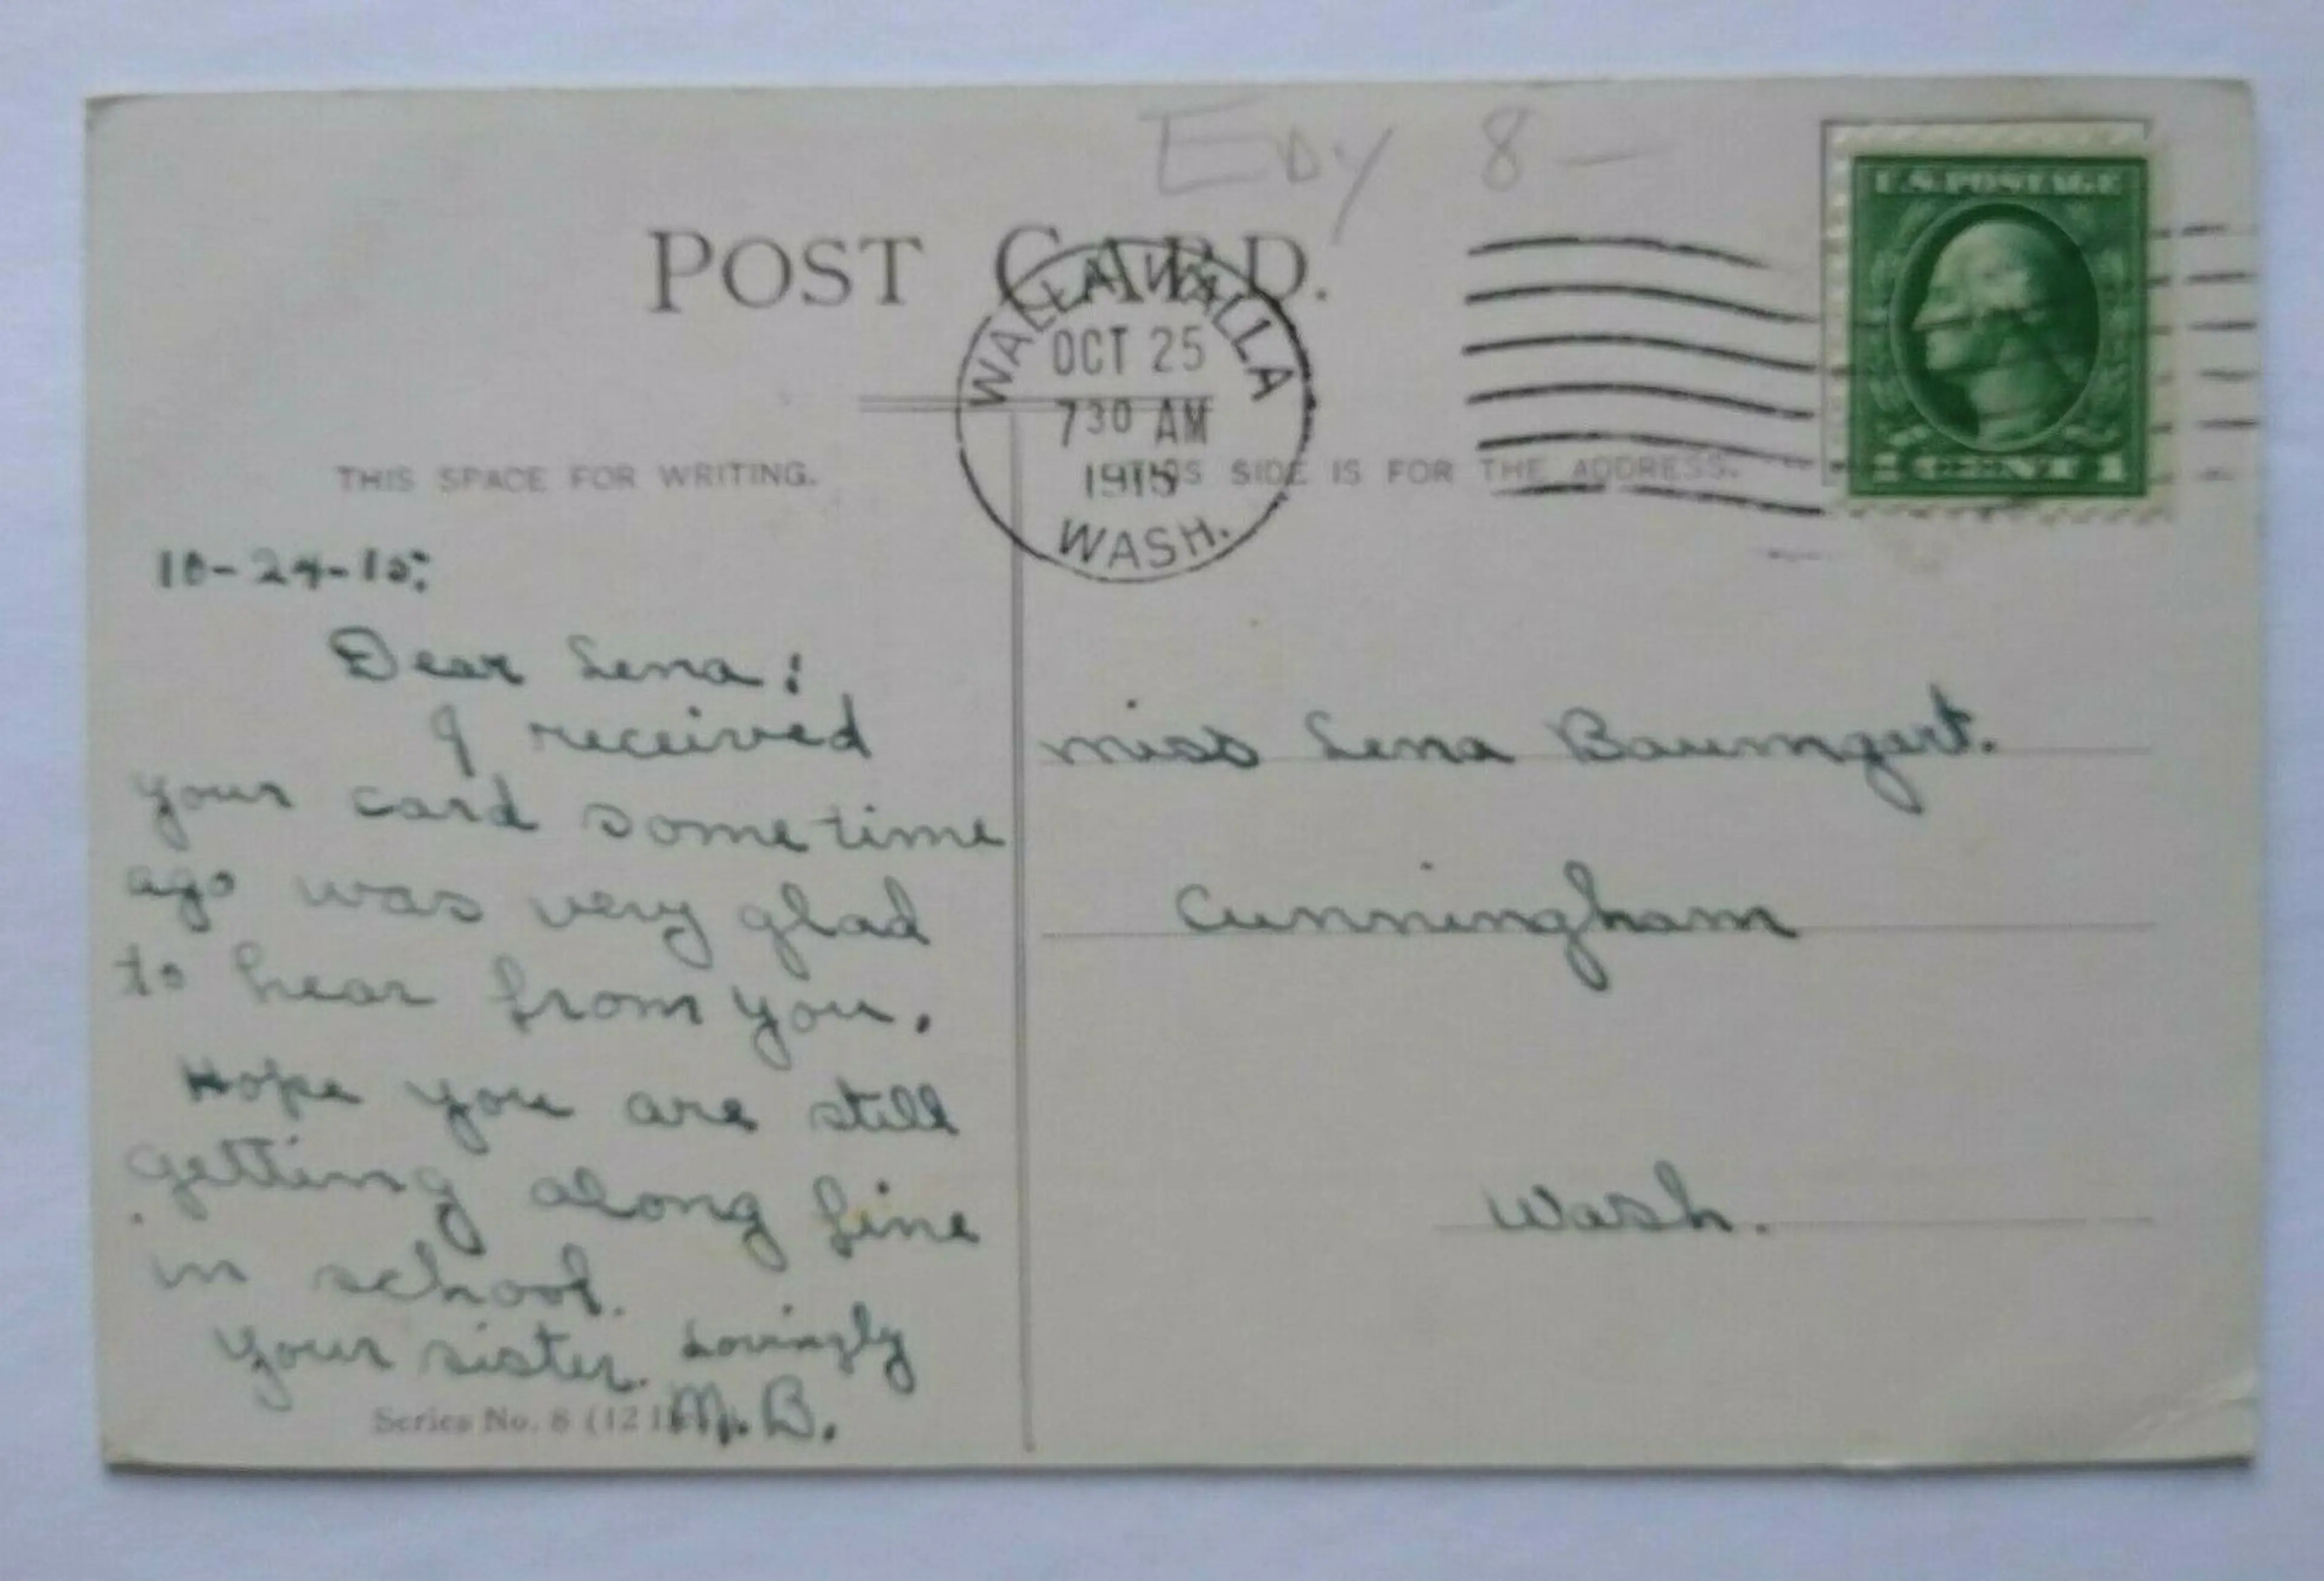 Edy 8—
POST CARD.
U.S. POSTAGE
1 CENT 1
WALLA WALLA
OCT 25
730 AM
1915
WASH.
THIS SPACE FOR WRITING.
THIS SIDE IS FOR THE ADDRESS.
10-24-15.
Dear Lena:
I received
your card sometime
ago was very glad
to hear from you.
Hope you are still
getting along fine
in school.
Your sister. Lovingly
M.B.
Series No. 8 (12
Miss Lena Baumgart.
Cunningham
Wash.